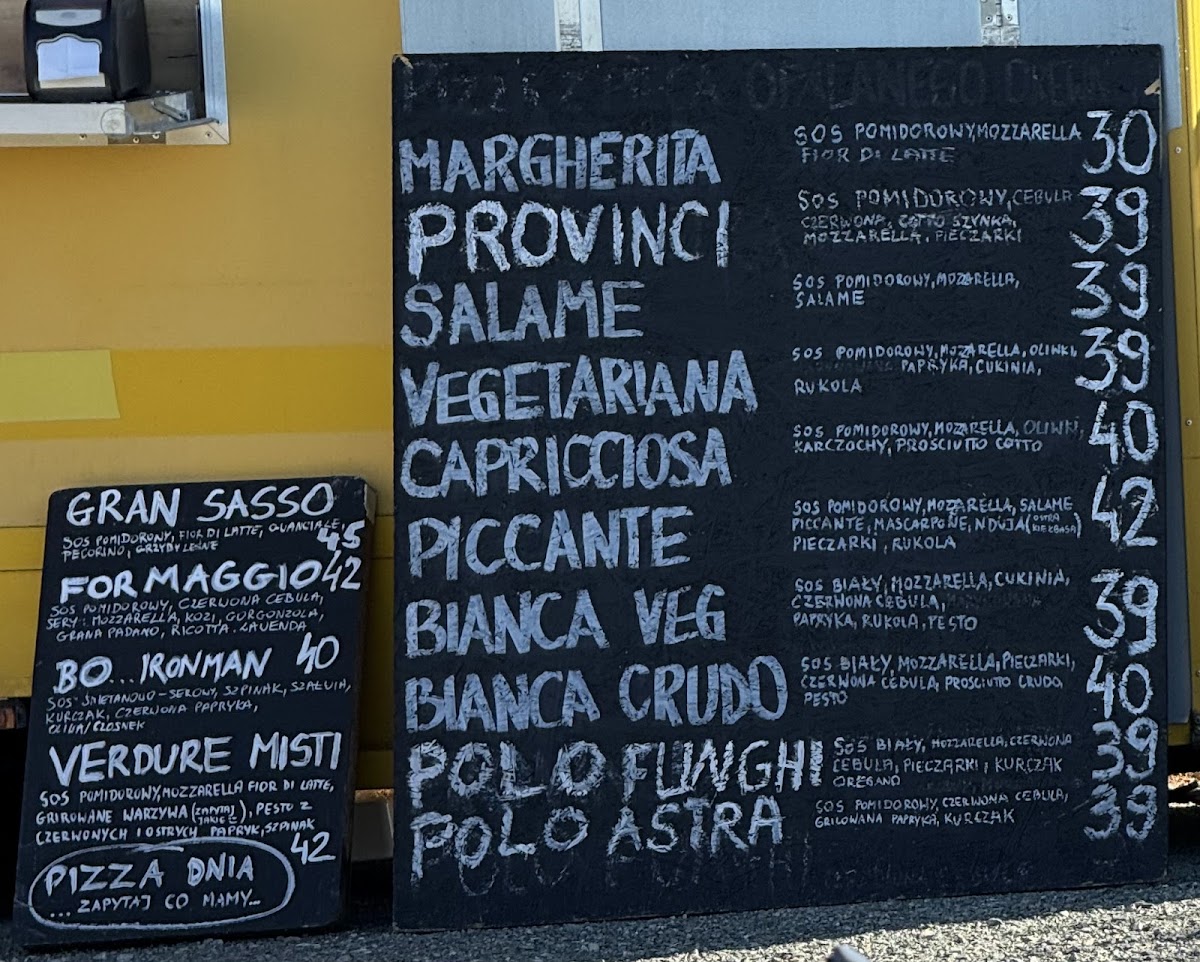 GRAN SASSO
SOS POMIDOROWY, FIOR DI LATTE, GUANCIALE,
PECORINO, GRZYBY LEŚNE
45
FORMAGGIO 42
SOS POMIDOROWY, CZERWONA CEBULA,
SERY: MOZZARELLA, KOZI, GORGONZOLA,
GRANA PADANO, RICOTTA. LAWENDA
BO... IRONMAN 40
SOS ŚMIETANOWO-SEROWY, SZPINAK, SZAŁWIA,
KURCZAK, CZERWONA PAPRYKA,
CZOSNEK
VERDURE MISTI
SOS POMIDOROWY, MOZZARELLA FIOR DI LATTE,
GRIROWANE WARZYWA (ZAPYTAJ JAKIE), PESTO Z
CZERWONYCH I OSTRYCH PAPRYK, SZPINAK
42
PIZZA DNIA
... ZAPYTAJ CO MAMY...
OPALANEGO
MARGHERITA SOS POMIDOROWY, MOZZARELLA 30
FIOR DI LATTE
PROVINCI SOS POMIDOROWY, CEBULA 39
CZERWONA, COTTO SZYNKA,
MOZZARELLA, PIECZARKI
SALAME SOS POMIDOROWY, MOZARELLA, 39
SALAME
VEGETARIANA SOS POMIDOROWY, MOZARELLA, OLIWKI, 39
PAPRYKA, CUKINIA,
RUKOLA
CAPRICCIOSA SOS POMIDOROWY, MOZARELLA, OLIWKI, 40
KARCZOCHY, PROSCIUTTO COTTO
PICCANTE SOS POMIDOROWY, MOZARELLA, SALAME 42
PICCANTE, MASCARPONE, NDUJA (OSTRA KIEŁBASA)
PIECZARKI, RUKOLA
BIANCA VEG SOS BIAŁY, MOZZARELLA, CUKINIA, 39
CZERWONA CEBULA,
PAPRYKA, RUKOLA, PESTO
BIANCA CRUDO SOS BIAŁY, MOZZARELLA, PIECZARKI, 40
CZERWONA CEBULA, PROSCIUTTO CRUDO,
PESTO
POLO FUNGHI SOS BIAŁY, MOZZARELLA, CZERWONA 39
CEBULA, PIECZARKI, KURCZAK
OREGANO
POLO ASTRA SOS POMIDOROWY, CZERWONA CEBULA, 39
GRILOWANA PAPRYKA, KURCZAK